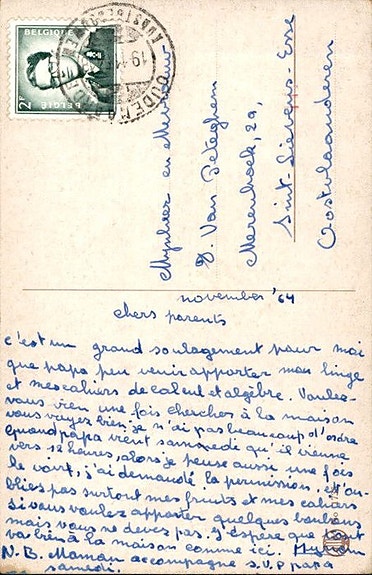 BELGIQUE
2F
BELGIË
19-11
Mijnheer en Mevrouw
D. Van Peteghem
Merenhoek, 29,
Sint-Lievens-Esse
Oostvlaanderen
november '64
chers parents
c'est un grand soulagement pour moi
que papa peu venir apporter mon linge
et mes cahiers de calcul et algèbre. Voulez-
vous vien une fois chercher à la maison
vous voyez bien je n'ai pas beaucoup d'ordre
quand papa vient samedi qu'il vienne
vers 12 heures, alors je peuse aussi une fois
le voir, j'ai demandé la permission. N'ou-
bliez pas surtout mes fruits et mes cahiers
si vous voulez apporter quelques bonbons
mais vous ne devez pas. J'espère que tout
va bien à la maison comme ici.
N.B. Maman accompagne s.v.p papa
samedi.